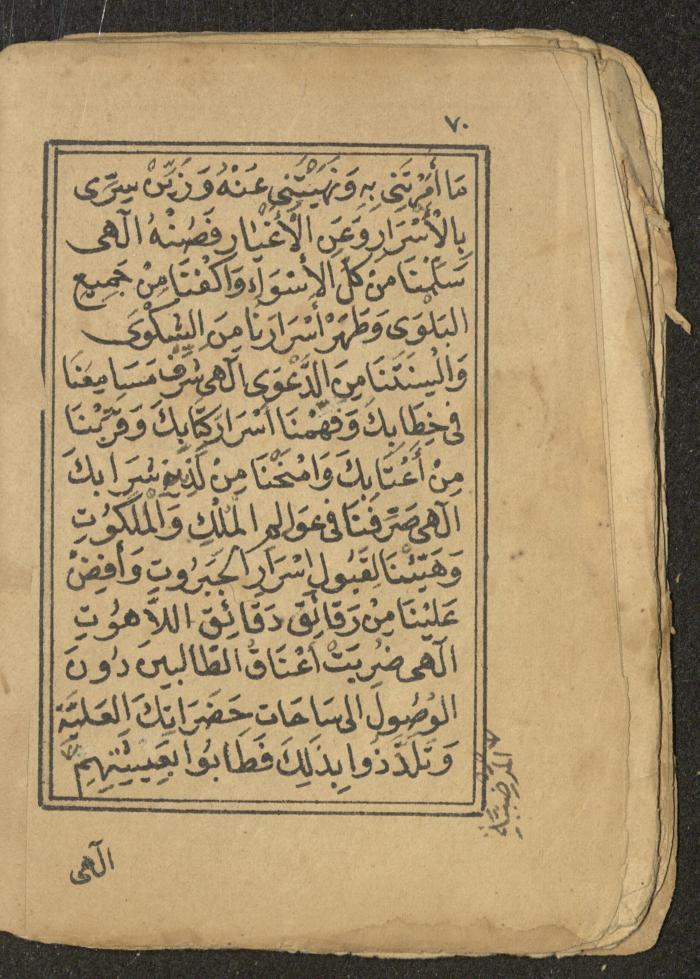 ٧٠
مَا أَمَرْتَنِي بِهِ وَنَهَيْتَنِي عَنْهُ وَزَيِّنْ سِرِّى
بِالْأَسْرَارِ وَعَنِ الْأَغْيَارِ فَصُنْهُ الٓهى
سَلِّمْنَا مِنْ كُلِّ الأَسْوَاءِ وَاكْفِنَا مِنْ جَمِيعِ
البَلْوَى وَطَهِّرْ أَسْرَارَنَا مِنَ الشَّكْوَى
وَالْسِنَتَنَا مِنَ الدَّعْوَى الٓهى شَرِّفْ مَسَامِعَنَا
فى خِطَابِكَ وَفَهِّمْنَا اَسْرَارَ كِتَابِكَ وَقَرِّبْنَا
مِنْ أَعْتَابِكَ وَامْنَحْنَا مِنْ لَذِيذِ شَرَابِكَ
الٓهى صَرِّفْنَا فى عَوَالِمِ الْمُلْكِ وَالْمَلَكُوتِ
وَهَيِّئْنَا لِقَبُولِ اَسْرَارِ الْجَبَرُوتِ وَأَفِضْ
عَلَيْنَا مِنْ رَقَائِقِ دَقَائِقِ اللَّاهُوتِ
الٓهى ضُرِبَتْ اَعْنَاقُ الطَّالِبِينَ دُونَ
الوُصُولِ الى سَاحَاتِ حَضَرَاتِكَ الْعَلِيَّةِ
وَتَلَذَّذُوا بِذَلِكَ فَطَابُوا بِعَيْشَتِهِمِ
المَرْضِيَّةِ
الٓهى